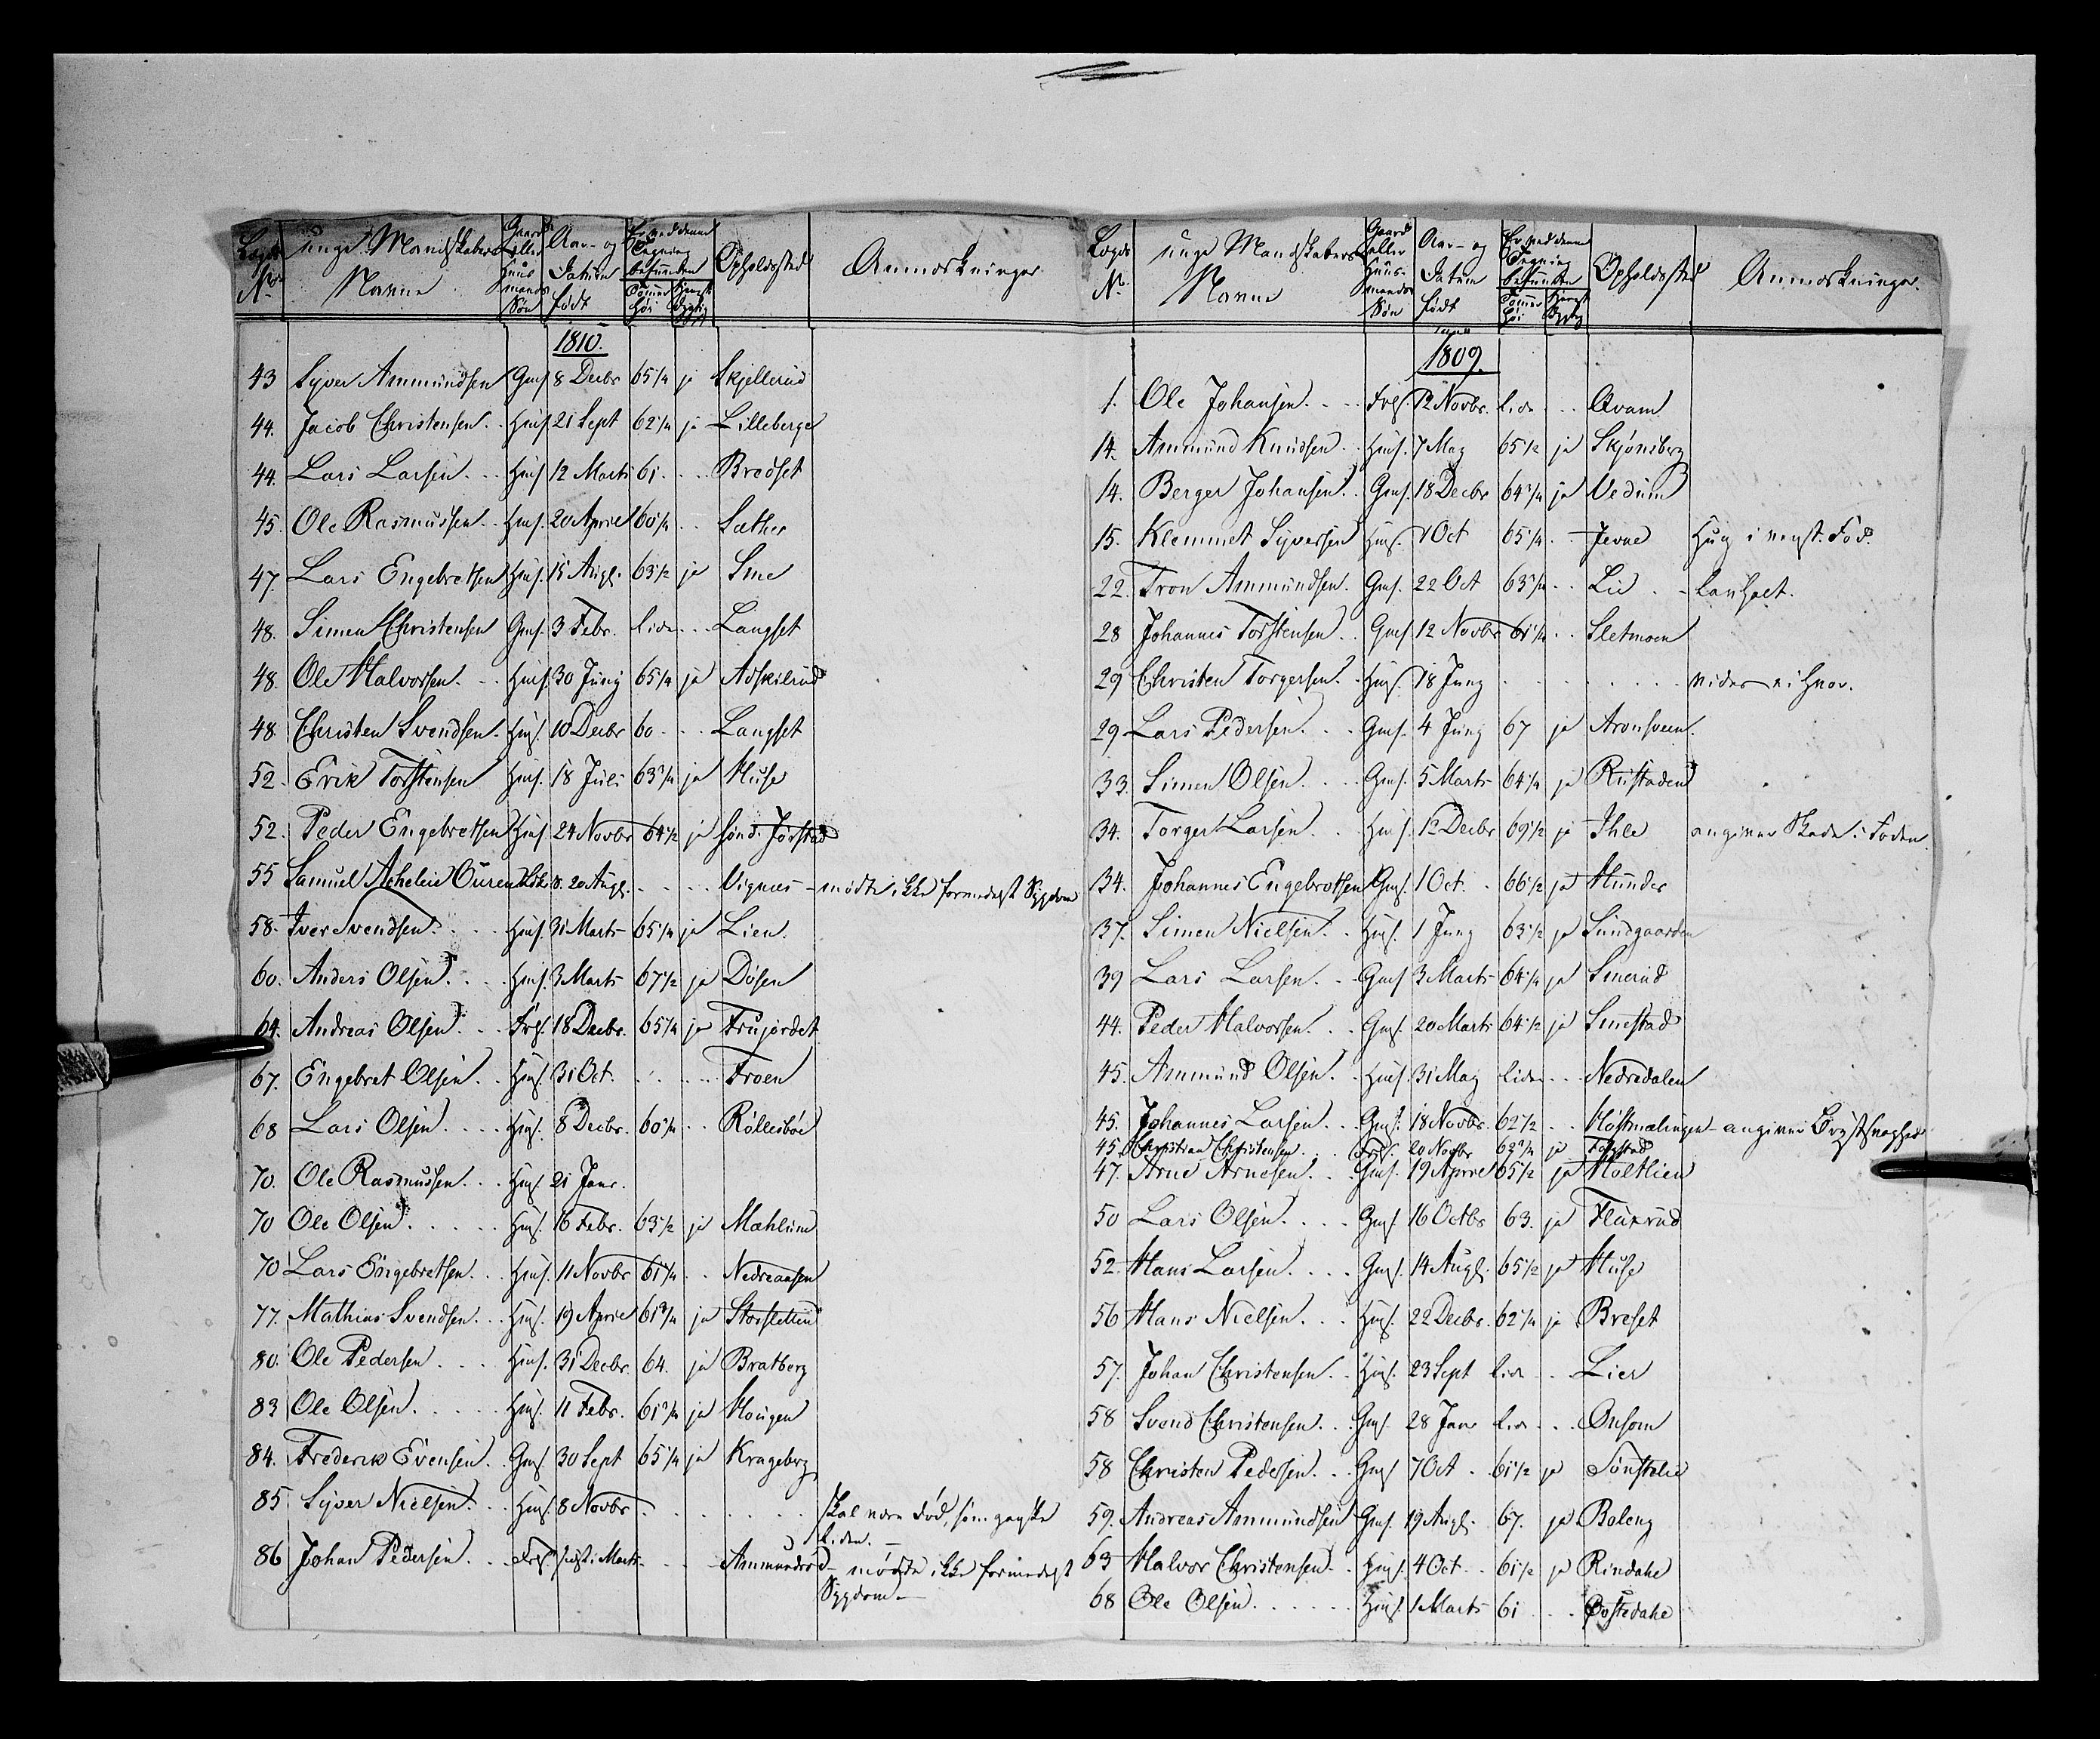 Lægds No | unge Mandskabers Navne | Gaard eller Huusmands Søn | Aar- og Datum født | Er ved denne Tegning befunden Tommer høi | tienstdygtig | Opholdssted | Anmærkninger
1810.
43 Syver Ammundsen Gmf 8 Decbr 65 1/4 ja Skjellerud
44. Jacob Christensen Hmf 21 Sept 62 1/4 ja Lilleberge
44. Lars Larsen Hmf 12 Marts 61 Bredset
45. Ole Rasmussen Hmf. 20 April 60 1/4 Sæther
47. Lars Engebretsen Hmf. 15 Augs. 63 1/2 ja Sme
48. Simen Christensen Gmf. 3 Febr. liden Langset
48. Ole Halvorsen Hmf. 30 Juny 65 1/4 ja Adskilrud
48 Christen Svendsen Hmf. 10 Decbr 60 Langset
52. Erik Torstensen Hmf. 18 Juli 63 3/4 ja Huse
52. Peder Engebretsen Hmf 24 Novbr 64 1/2 ja sønd. Jørstad
55 Samuel Achelie Ouren 20 Augs. Vignæs mødte ikke formedelst Sygdom
58. Iver Svendsen Hmf. 31 Marts 65 1/4 ja Lien.
60. Anders Olsen Hmf. 3 Marts 67 1/2 ja Døsen
64. Andreas Olsen Frf. 18 Decbr. 65 1/4 ja Frujordet
67. Engebret Olsen Hmf. 31 Oct. Froen
68 Lars Olsen Hmf. 8 Decbr. 60 1/4 Røllesbøe
70. Ole Rasmussen Hmf 21 Janr.
70 Ole Olsen Hmf. 16 Febr. 63 1/2 ja Mæhlum
70 Lars Engebretsen Hmf. 11 Novbr 61 1/4 Nedreaasen
77. Mathias Svendsen Hmf. 19 April 61 3/4 ja Storsletten
80. Ole Pedersen Hmf. 31 Decbr. 64. ja Bratberg
83 Ole Olsen Hmf. 11 Febr. 61 3/4 ja Hougen
84. Frederik Evensen Gmf. 30 Sept 65 1/4 ja Krageberg
85 Syver Nielsen Hmf. 8 Novbr skal være død, som ganske
liden.
86 Johan Pedersen Frf Marts Ammundrud mødte ikke formedelst
Sygdom
Lægds No | unge Mandskabers Navne | Gaard eller Huus-mands Søn | Aar- og Datum født | Er ved denne Tegning befunden Tommer høi | tienstdygtig | Opholdssted | Anmærkninger.
1809.
1. Ole Johansen Frf. 12 Novbr. liden Qvam
14. Ammund Knudsen Hmf. 7 May 65 1/2 ja Skjønsberg
14. Berger Johansen Gmf. 18 Decbr 64 3/4 ja Vedum
15. Klemmet Syversen Hmf. 1 Oct 65 1/4 Jevne Hug i venst. Fod.
22. Tron Ammundsen Gmf. 22 Oct 63 3/4 Lie lavhalt.
28 Johannes Torstensen Gmf. 12 Novbr 61 1/4 Sletmoen
29 Christen Torgersen Hmf. 18 Juny
29 Lars Pedersen Gmf. 4 Juny 67 ja Aronsveen.
33 Simen Olsen Gmf. 5 Marts 64 1/4 ja Rustaden
34. Torger Larsen Hmf. 12 Decbr 69 1/2 ja Ihle angiver Skade i Foden
34. Johannes Engebretsen Gmf. 1 Oct. 66 1/2 ja Hunder
37. Simen Nielsen Hmf. 1 Juny 63 1/2 ja Sundgaarden
39 Lars Larsen Gmf 3 Marts 64 1/4 ja Smerud
44. Peder Halvorsen Gmf. 20 Marts 64 1/2 ja Smestad
45. Ammund Olsen Hmf. 31 May liden Nedredalen
45. Johannes Larsen Gmf. 18 Novbr. 62 1/2 Høstmælingen angiver Brystsvaghed
45. Christian Christensen Frf. 20 Novbr 62 3/4 ja
47. Arne Arnesen Gmf. 19 April 65 1/2 ja Holtlien
50 Lars Olsen Gmf. 16 Octbr 63. ja Fluxrud
52. Hans Larsen Gmf. 14 Augs. 65 1/2 ja Huse
56 Hans Nielsen Hmf. 22 Decbr. 62 1/4 ja Breset
57. Johan Christensen Hmf. 23 Sept liden Lier
58 Svend Christensen Gmf. 28 Janr liden Onsom
58 Christen Pedersen Gmf 7 Oct 61 1/2 ja Tønstelie
59. Andreas Ammundsen Gmf. 19 Augs. 67. ja Boleng
63 Halvor Christensen Hmf. 4 Oct 61 1/2 ja Rindahe
68 Ole Olsen Hmf. 1 Marts 61 Østedahe